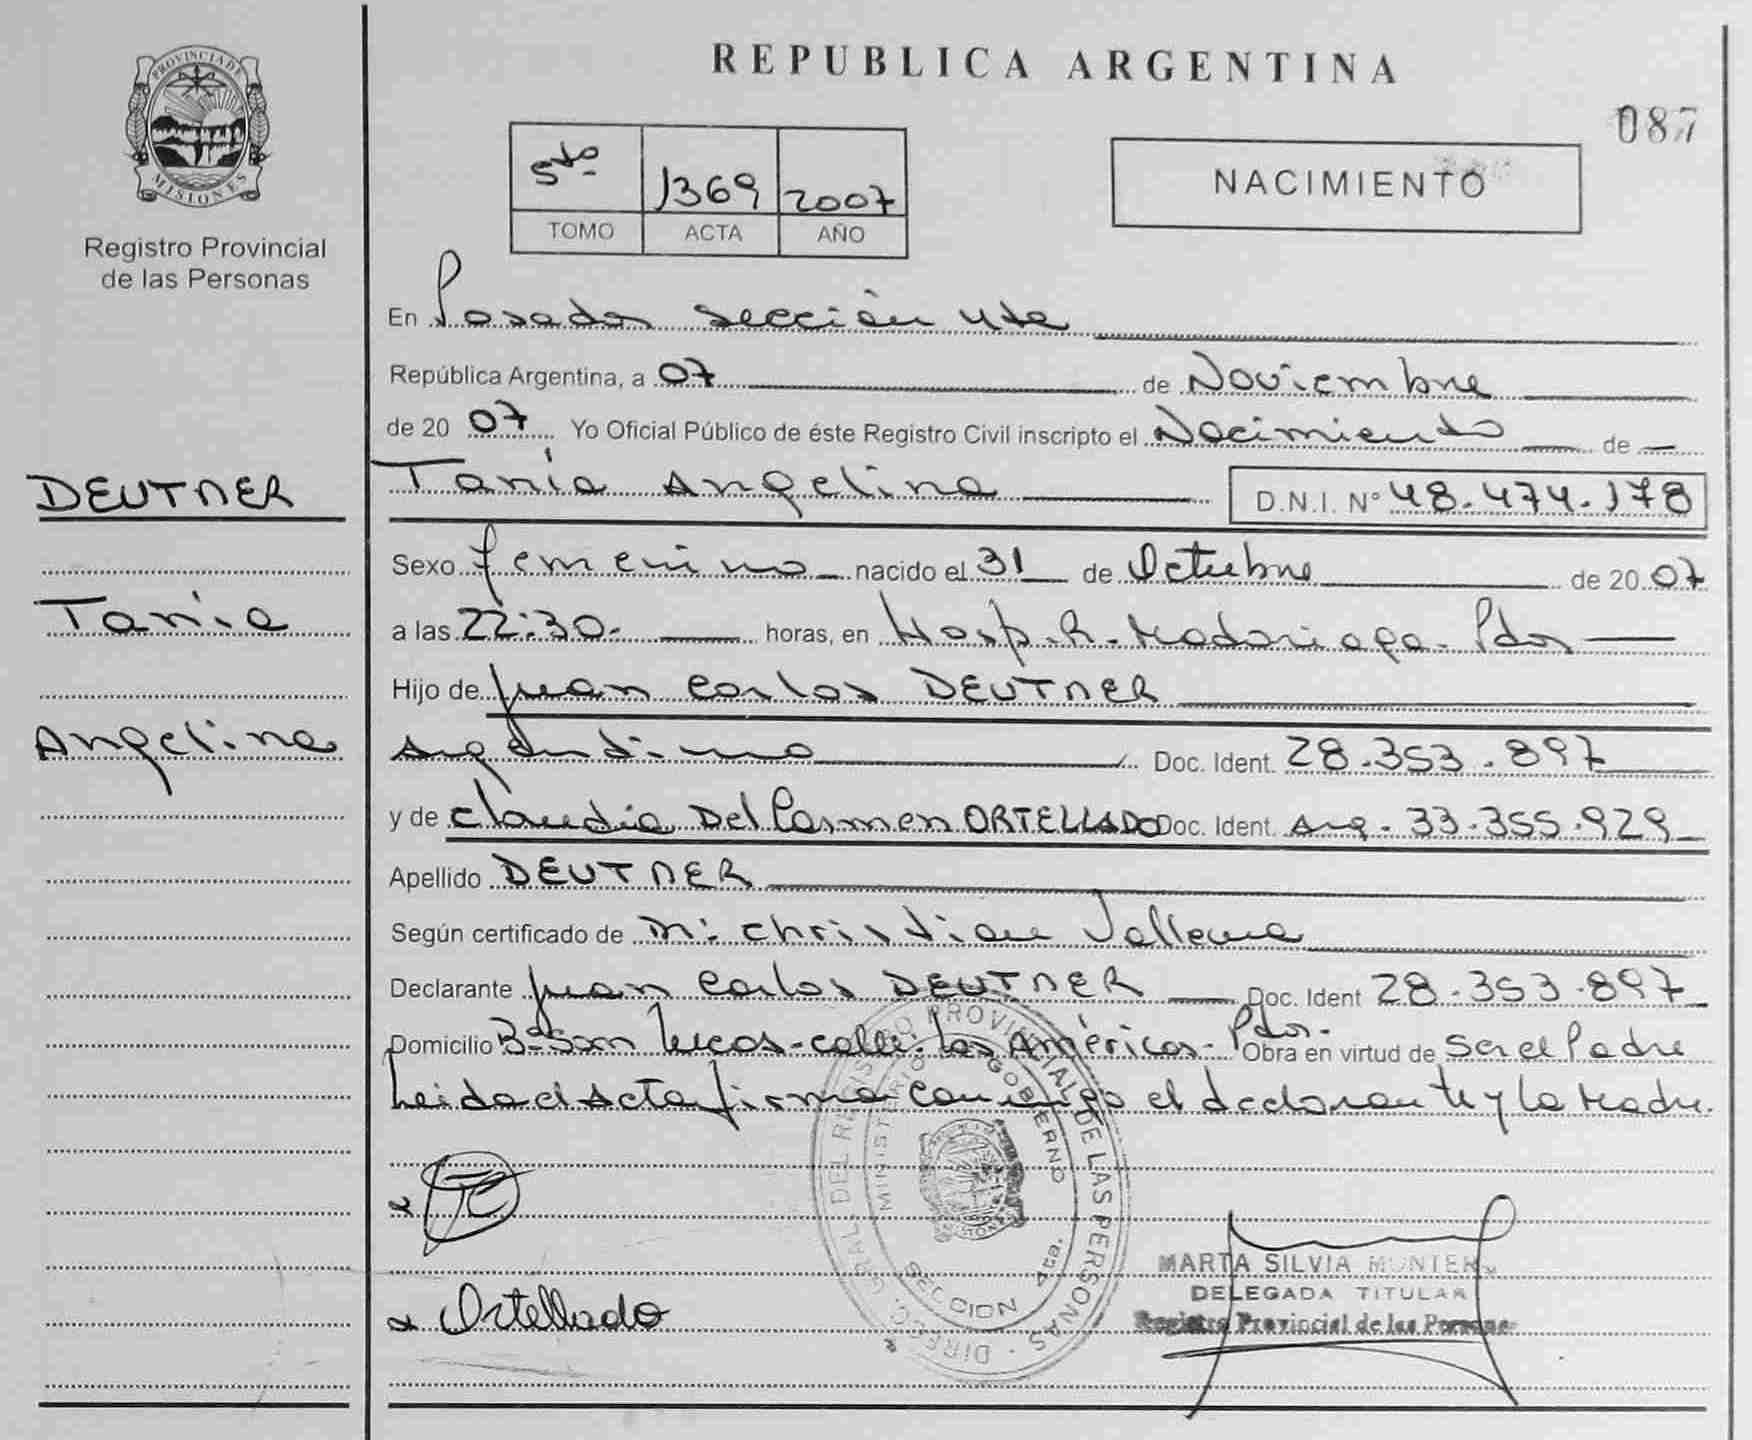 REPUBLICA ARGENTINA
087
PROVINCIA DE
MISIONES
Registro Provincial
de las Personas
5to 1369 2007
TOMO ACTA AÑO
NACIMIENTO
En Posadas sección 4ta
República Argentina, a 07 de Noviembre
de 20 07 Yo Oficial Público de éste Registro Civil inscripto el Nacimiento de
DEUTNER
Tania Angelina D.N.I. N° 48.474.178
Sexo femenino nacido el 31 de Octubre de 20 07
Tania
a las 22:30. horas, en Hosp. R. Madariaga. Pdas
Hijo de Juan Carlos DEUTNER
Angelina
Argentino Doc. Ident. 28.353.897
y de Claudia Del Carmen ORTELLADO Doc. Ident. Arg. 33.355.929
Apellido DEUTNER
Según certificado de Christian
Declarante Juan Carlos DEUTNER Doc. Ident 28.353.897
Domicilio B° San Lucas-calle: Las Américas- Pdas. Obra en virtud de ser el Padre
Leida el Acta firma conmigo el declarante y la Madre.
DIREC. GRAL. DEL REGISTRO PROVINCIAL DE LAS PERSONAS
MINISTERIO GOBIERNO
SECCION 4ta.
Ortellado
MARTA SILVIA MUNIER
DELEGADA TITULAR
Registro Provincial de las Personas